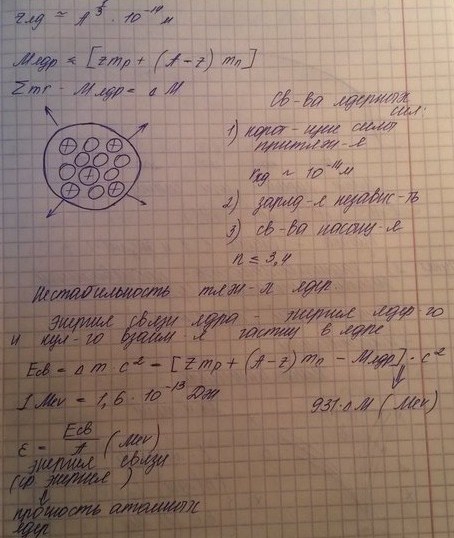 rяд ≃ A^⅓ · 10⁻¹⁴ м
Mядр ≈ [Zmp + (A-z) mn]
Σmr - Mядр = ΔM
Св-ва ядерных
сил.
1) корот-щие силы
притяж-я
rяд ~ 10⁻¹⁴ м
2) заряд-я независ-ть
3) св-ва насыщ-я
n ≤ 3,4
Нестабильность тяж-х ядер.
Энергия связи ядра - энергия ядер-го
и кул-го взаим-я частиц в ядре
Eсв = Δm · c² = [Zmp + (A-z) mn - Mядр] · c²
1 Mev = 1,6 · 10⁻¹³ Дж
931·ΔM (Mev)
ε = Eсв / A (Mev)
энергия связи
(ср энергия)
прочность атомных
ядер